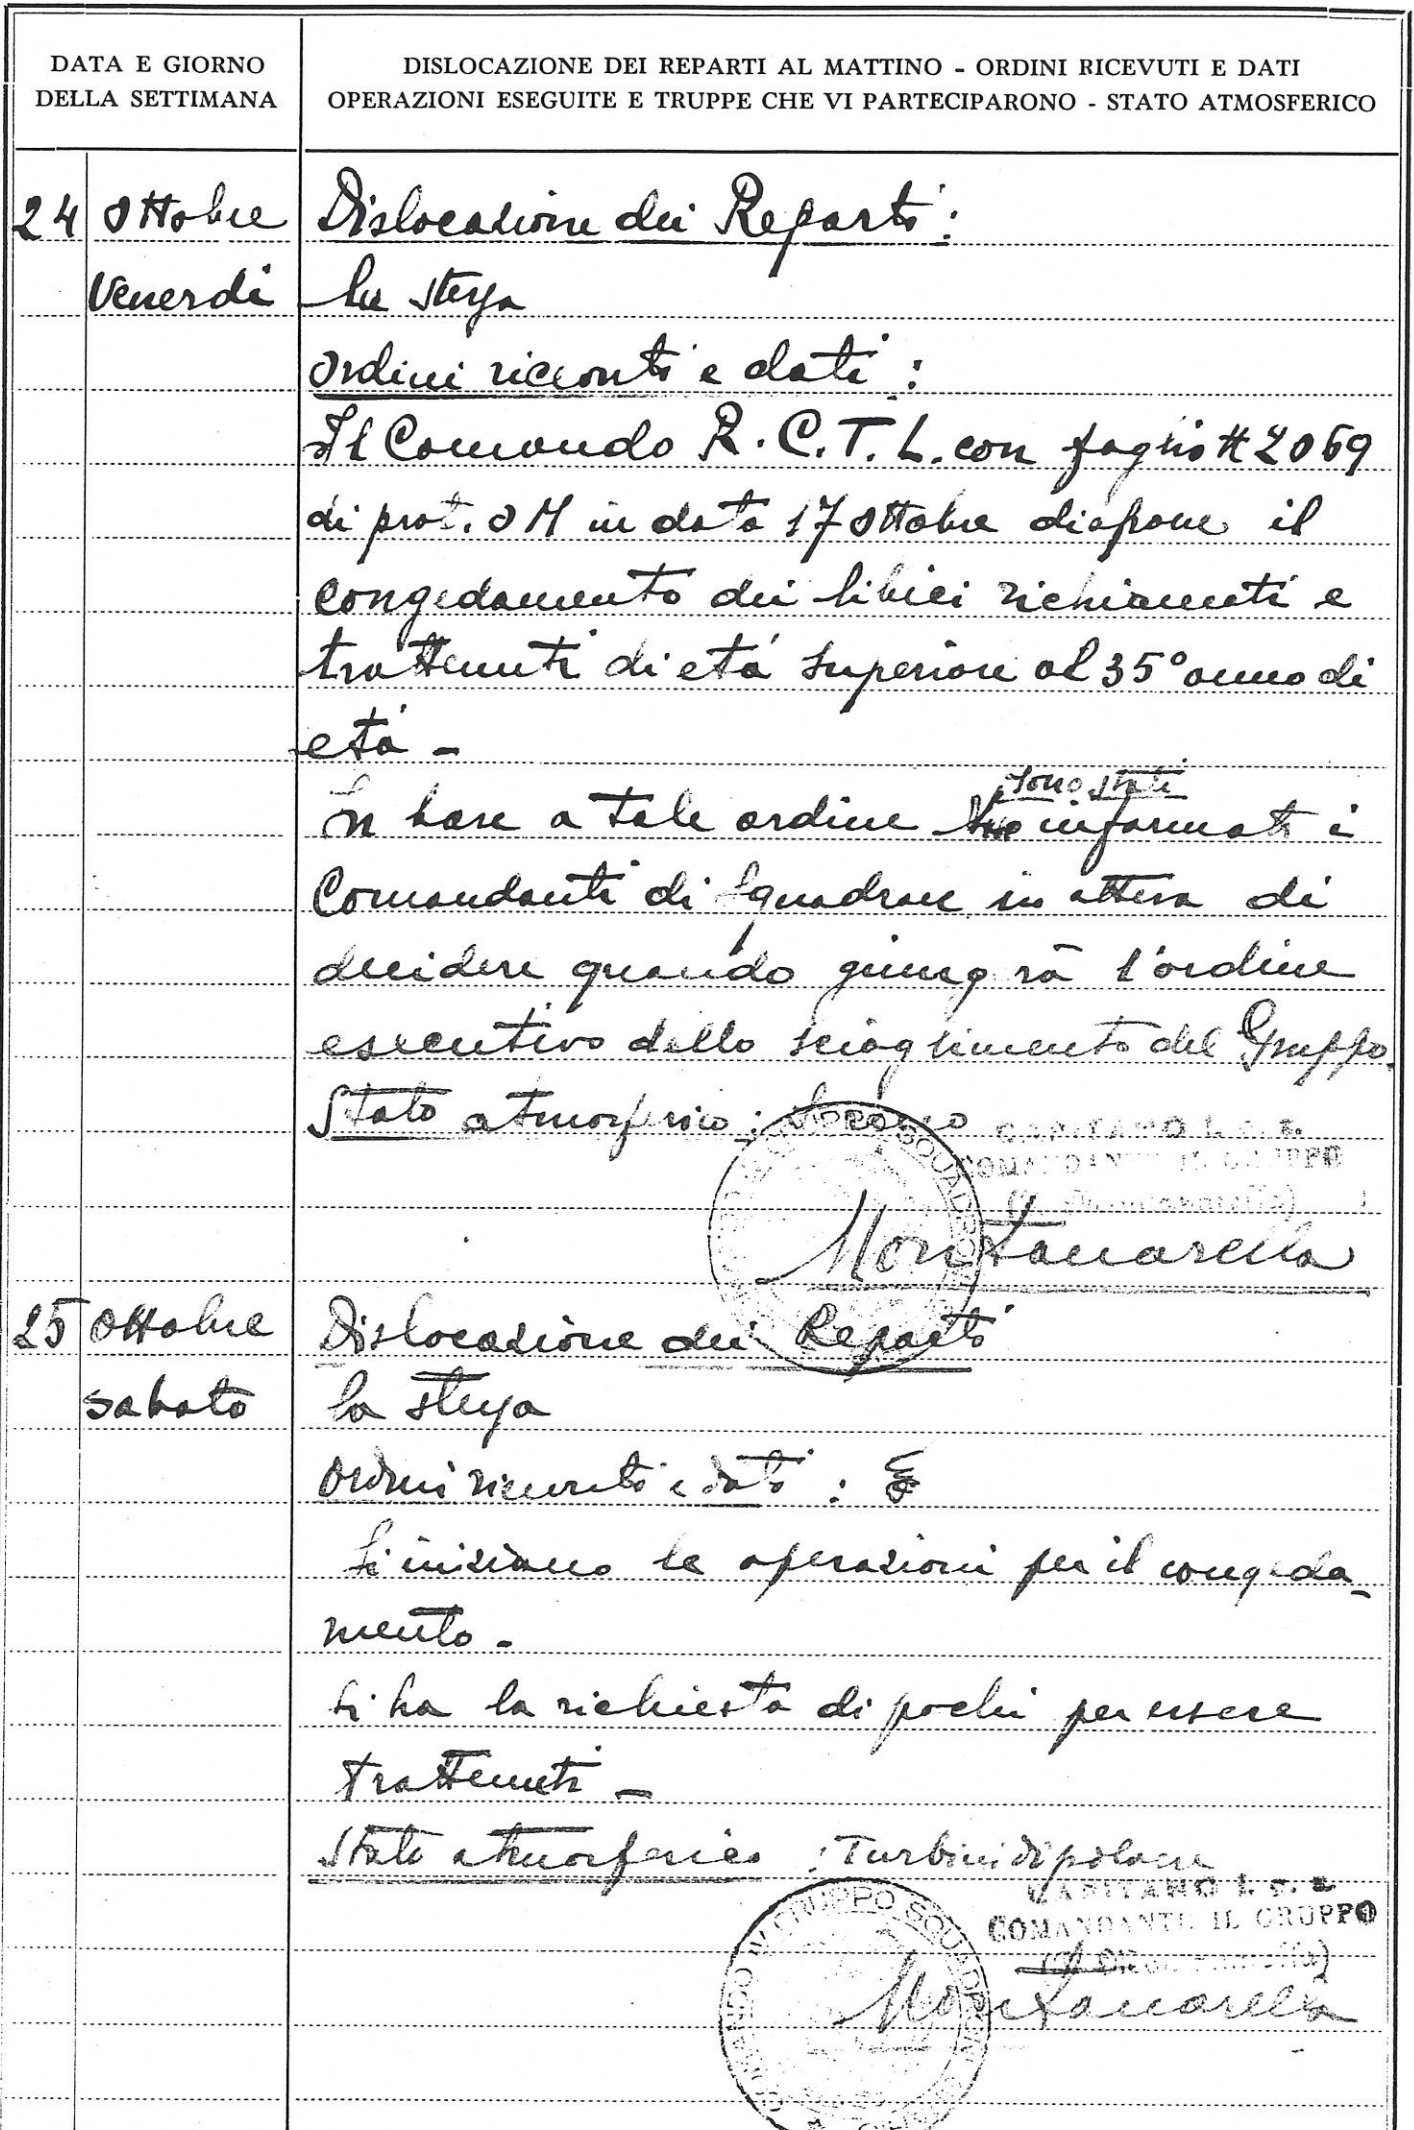 DATA E GIORNO
DELLA SETTIMANA
DISLOCAZIONE DEI REPARTI AL MATTINO - ORDINI RICEVUTI E DATI
OPERAZIONI ESEGUITE E TRUPPE CHE VI PARTECIPARONO - STATO ATMOSFERICO
24 Ottobre Dislocazione dei Reparti:
Venerdì La stessa
Ordini ricevuti e dati:
Il Comando R.C.T.L. con foglio # 2069
di prot. OM in data 17 Ottobre dispone il
congedamento dei libici richiamati e
trattenuti di età superiore al 35° anno di
età -
sono stati
In base a tale ordine informati i
Comandanti di Squadrone in attesa di
decidere quando giungerà l'ordine
esecutivo dello scioglimento del Gruppo.
Stato atmosferico:
CAPITANO
COMANDANTE IL GRUPPO
Montanarella
25 Ottobre Dislocazione dei Reparti
sabato la stessa
Ordini ricevuti e dati:
Si iniziano le operazioni per il congeda-
mento -
Si ha la richiesta di pochi per essere
trattenuti -
Stato atmosferico: Turbini di polvere
CAPITANO
COMANDANTE IL GRUPPO
COMANDO IV GRUPPO SQUADRONI
Montanarella